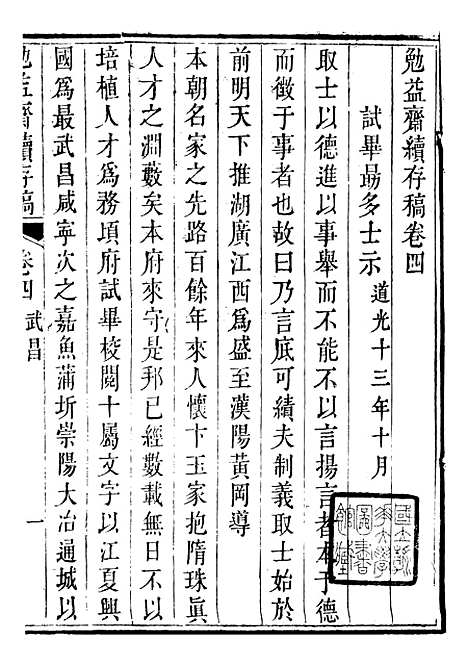 勉益齋續存稿卷四
試畢勗多士示 道光十三年十月
取士以德進以事舉而不能不以言揚言者本于德
而徵于事者也故曰乃言底可績夫制義取士始於
前明天下推湖廣江西為盛至漢陽黃岡導
本朝名家之先路百餘年來人懷卞玉家抱隋珠眞
人才之淵藪矣本府來守是邦已經數載無日不以
培植人才為務頃府試畢校閱十屬文字以江夏興
國為最武昌咸寧次之嘉魚蒲圻崇陽大冶通城以
勉益齋續存稿 卷四 武昌 一
國立北
平大學
圖書
館藏